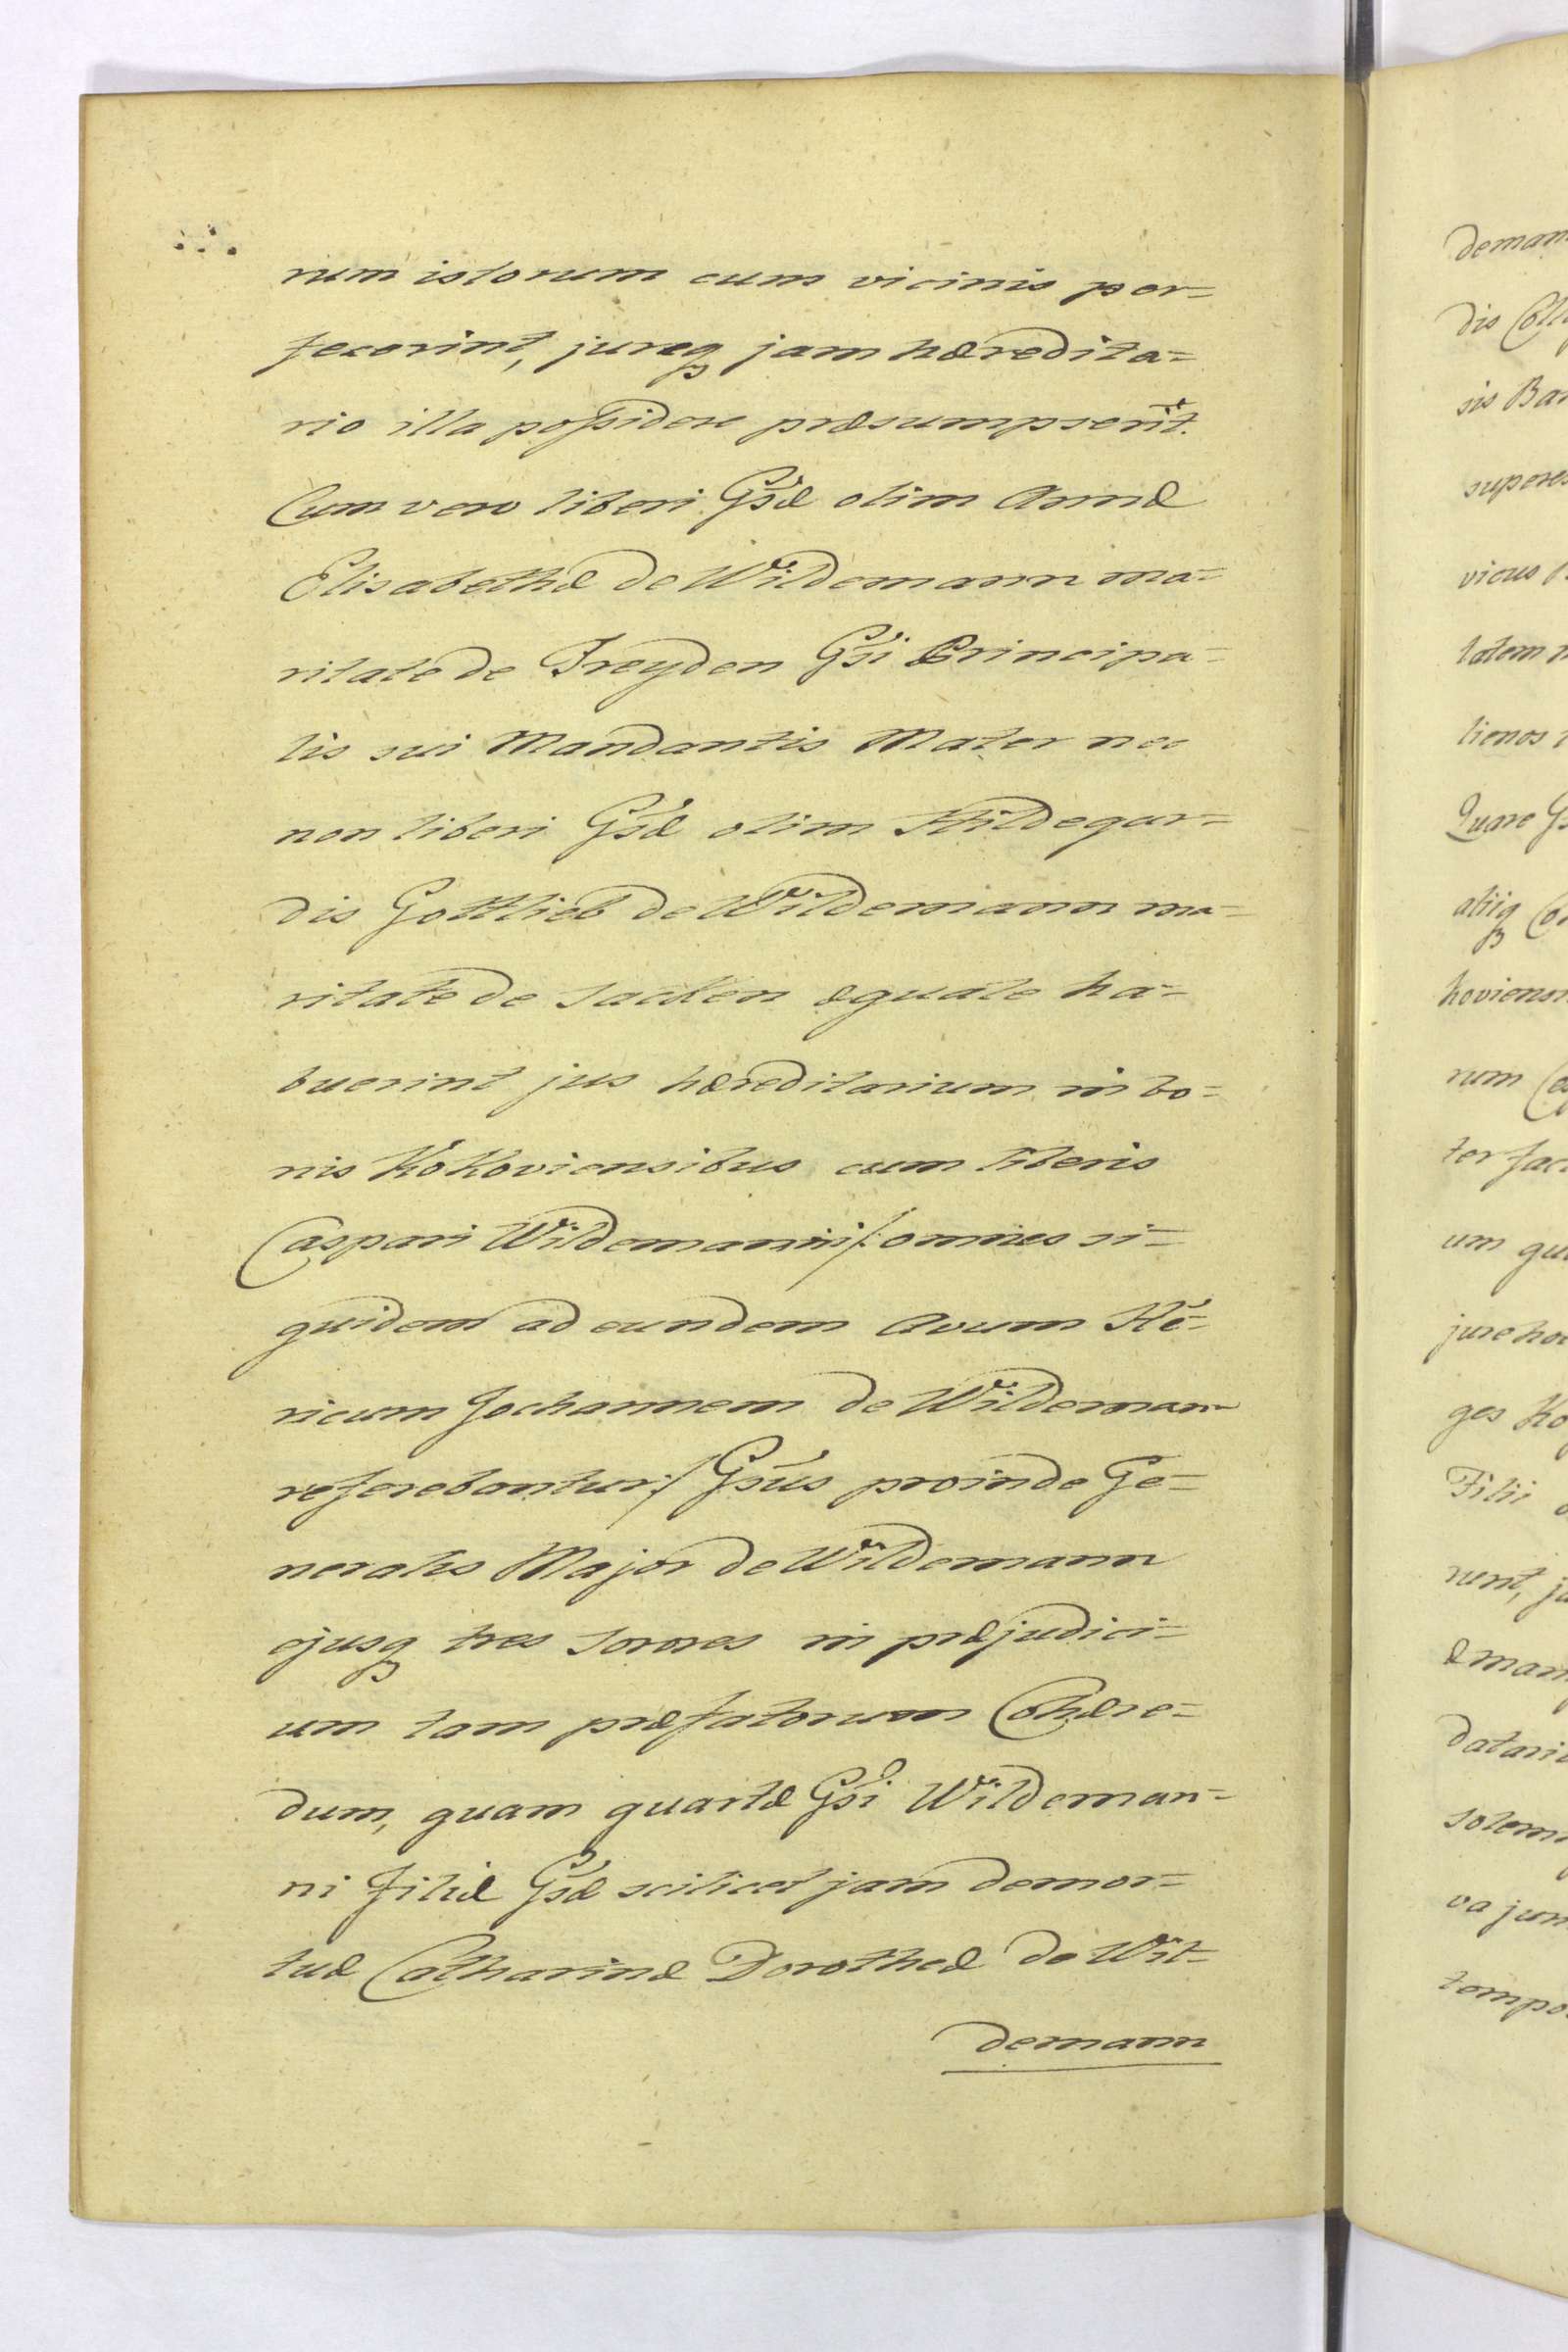 rum istorum cum vicinis per=
fecerint, jureq₃ jam hæredita=
rio illa possidere præsumpserit.
Cum vero liberi Gsæ olim Annæ
Elisabethæ de Wildemann ma=
ritatæ de Freyden Gsi Principa=
lis sui Mandantis Mater nec
non liberi Gsæ olim Hildegar=
dis Gottlieb de Wildemann ma=
ritatæ de Sacken æquale ha=
buerint jus hæreditarium in bo=
nis Kokoviensibus cum liberis
Caspari Wildemanni /: omnes si=
quidem ad eundem Avum He=
ricum Jochannem de Wildemann
referebantur :/ Gsus proinde Ge=
neralis Major de Wildemann
ejusq₃ tres sorores in præjudici=
um tam præfatorum Cohære=
dum, quam quartæ Gsi Wildeman=
ni Filiæ Gsæ scilicet jam demor=
tuæ Catharinæ Dorotheæ de Wil=
demann
deman
dis
sis
superes
vicus
tatem
lienos
Quare
aliiq₃
koviens
rum
ter fac
um qu
jure
ges
Filii
runt,
æ
datari
solem
va jur
tempo